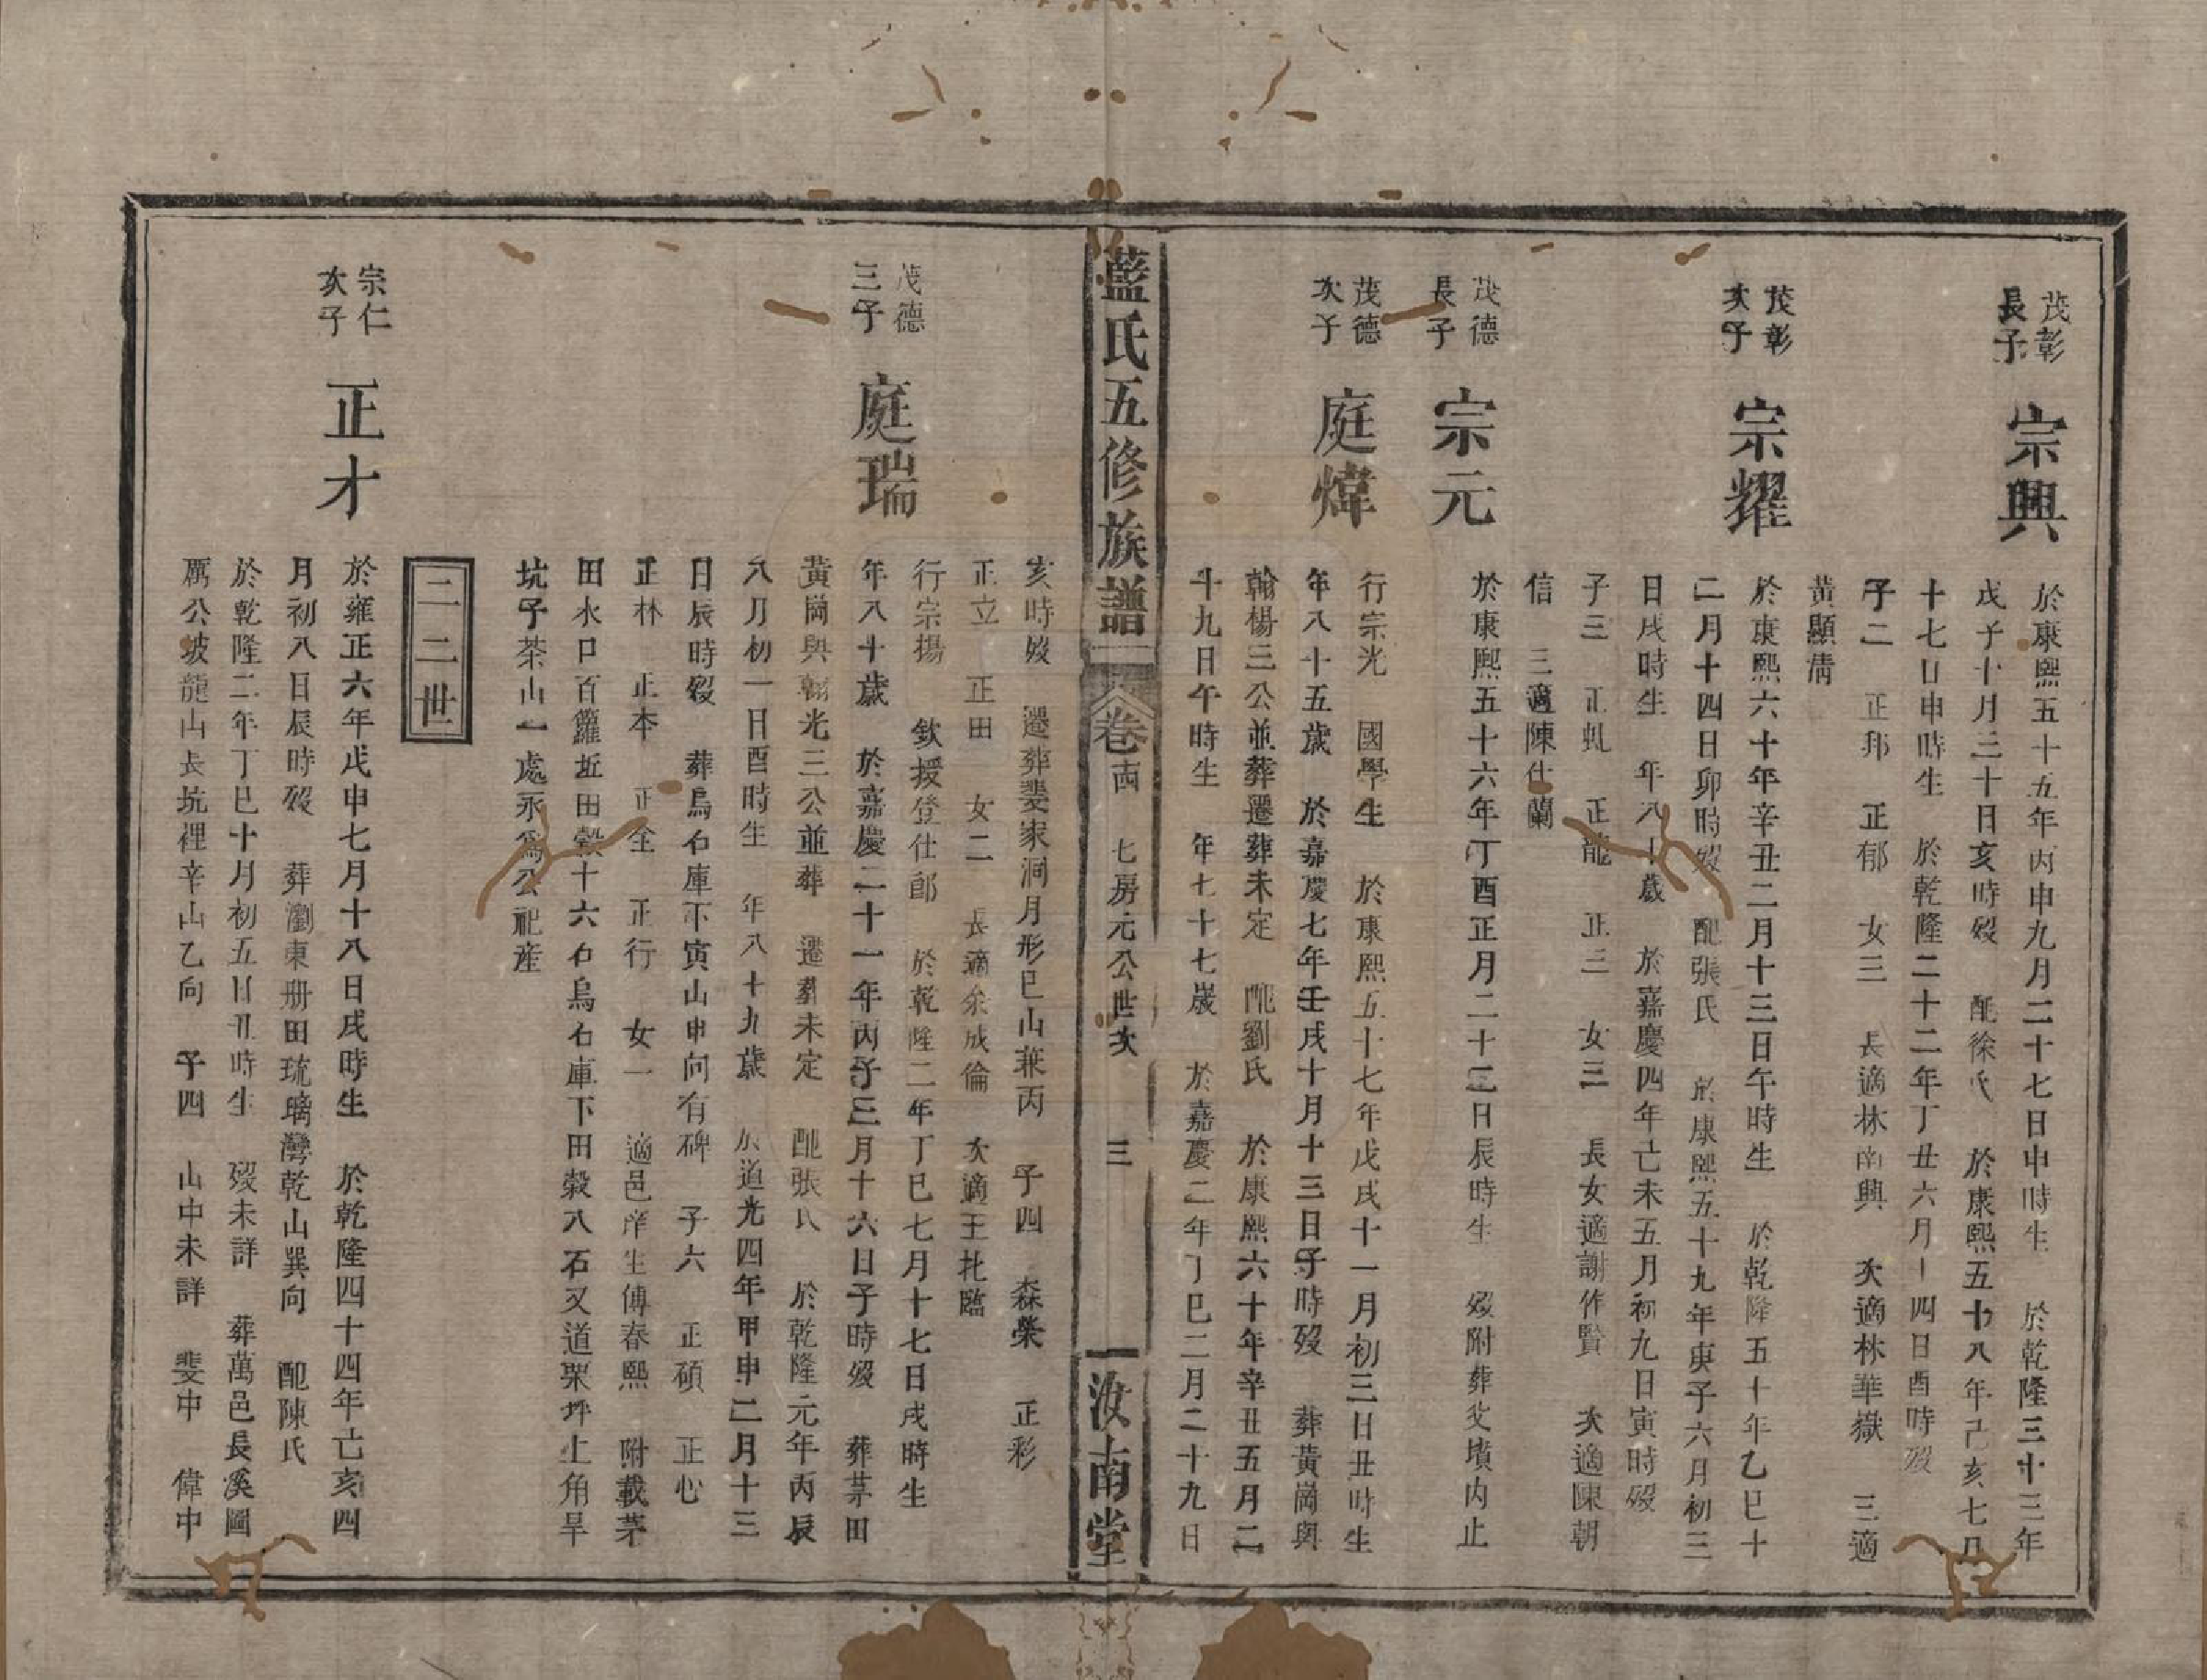 茂彰長子
宗興
於康熙五十五年丙申九月二十七日申時生　於乾隆三十三年
戊子十月三十日亥時歿　配徐氏　於康熙五十八年己亥七月
十七日申時生　於乾隆二十二年丁丑六月十四日酉時歿
子二　正邦　正郁　女三　長適林南興　次適林華嶽　三適
黃顯清
茂彰次子
宗耀
於康熙六十年辛丑二月十三日午時生　於乾隆五十年乙巳十
二月十四日卯時歿　配張氏　於康熙五十九年庚子六月初三
日戌時生　年八十歲　於嘉慶四年己未五月初九日寅時歿
子三　正虬　正龍　正三　女三　長女適謝作賢　次適陳朝
信　三適陳仕蘭
茂德長子
宗元
於康熙五十六年丁酉正月二十三日辰時生　歿附葬父墳內止
茂德次子
庭煒
行宗光　國學生　於康熙五十七年戊戌十一月初三日丑時生
年八十五歲　於嘉慶七年壬戌十月十三日子時歿　葬黃崗與
翰楊三公並葬遷葬未定　配劉氏　於康熙六十年辛丑五月二
十九日午時生　年七十七歲　於嘉慶二年丁巳二月二十九日
藍氏五修族譜　卷　七房元公世次　三　汝南堂
亥時歿　遷葬婁家洞月形巳山兼丙　子四　森榮　正彩
正立　正田　女二　長適余成倫　次適王批臨
茂德三子
庭瑞
行宗揚　欽援登仕郎　於乾隆二年丁巳七月十七日戌時生
年八十歲　於嘉慶二十一年丙子三月十六日子時歿　葬茅田
黃崗與翰光三公並葬　遷葬未定　配張氏　於乾隆元年丙辰
八月初一日酉時生　年八十九歲　於道光四年甲申二月十三
日辰時歿　葬烏石庫下寅山申向有碑　子六　正碩　正心
正林　正本　正全　正行　女一　適邑庠生傅春熙　附載茅
田水口百籮坵田穀十六石烏石庫下田穀八石又道棠坪上角旱
坑子茶山一處永為公祀産
二二世
宗仁次子
正才
於雍正六年戊申七月十八日戌時生　於乾隆四十四年己亥四
月初八日辰時歿　葬瀏東册田琉璃灣乾山巽向　配陳氏
於乾隆二年丁巳十月初五日丑時生　歿未詳　葬萬邑長溪圖
厲公坡龍山長坑裡辛山乙向　子四　山中未詳　斐中　偉中